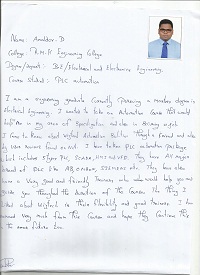 Name: Anndhan. D
College: R.M.K Engineering College
Degree/Depart: B.E/Electrical and Electronics Engineering
Course studied: PLC automation
I am a engineering graduate Currently pursuing a masters degree in
Electrical Engineering. I wanted to take an Automation Course that would
in my area of Specification and also in Securing a job.
I came to know about vigilant automation through a friend and also
by their reviews found on net. I have taken PLC automation package
which includes PLC, SCADA, HMI and VFD. They have all major
brands of PLC like AB, OMRON, SIEMENS etc. They have also
have a very good and friendly trainers who would help you and
guide you throughout the duration of the Course. The thing I
liked about vigilant is their flexibility and good trainers. I have
learned very much from this Course and hope they Continue this
in the same future too.